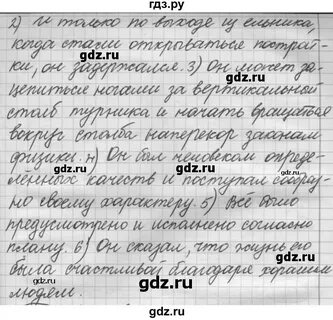 гдз.ру
2) И только по выходе из ельника,
когда стали открываться построй-
ки, он задержался. 3) Он может за-
цепиться ногами за вертикальной
столб турника и начать вращаться
вокруг столба наперекор законам
физики. 4) Он был человеком опреде-
лённых качеств и поступал сообраз-
но своему характеру. 5) Всё было
предусмотрено и исполнено согласно
плану. 6) Он сказал, что жизнь его
была счастливой благодаря хорошим
людям.
gdz.ru
gdz.ru
gdz.ru
gdz.ru
gdz.ru
gdz.ru
gdz.ru
gdz.ru
gdz.ru